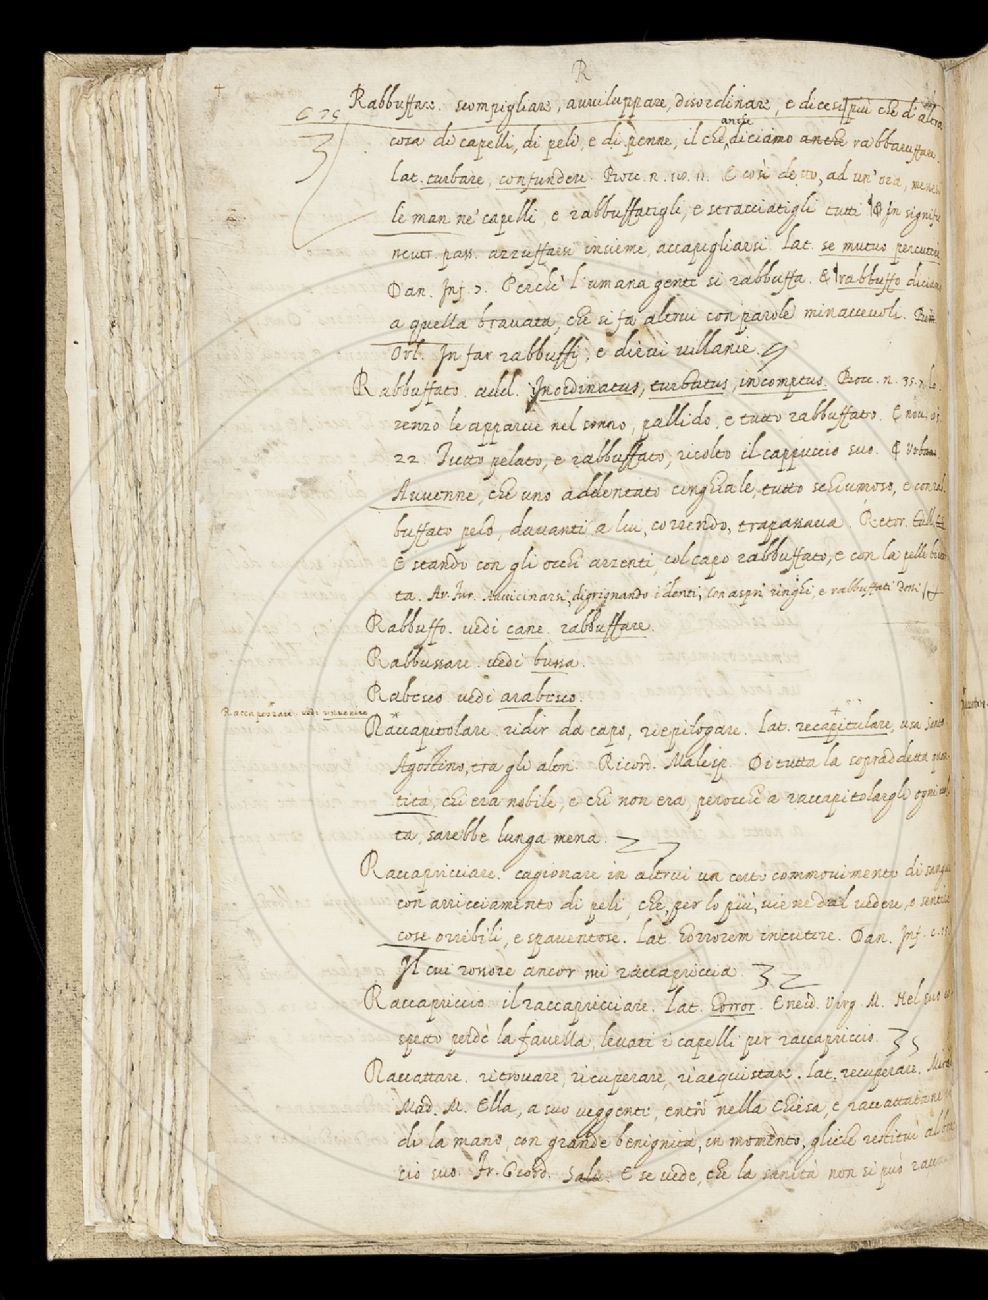 R
Rabbuffare. scompigliare, avviluppare, disordinare, e dicesi più che d'altra
cosa di capelli, di peli, e di penne, il che, anche diciamo anche rabbaruffare.
Lat. turbare, confundere. Bocc. n. 110. 11. E così detto, ad un'ora,
le man ne' capelli, e rabbuffatigli, e stracciatigli tutti & In signific
neutr. pass. azzuffarsi insieme, accapigliarsi. Lat. se mutuo percutere
Dan. Inf. 7. Perchè l'umana gente si rabbuffa. & rabbuffo diciamo
a quella bravata, che si fa altrui con parole minaccevoli.
Orl. In far rabbuffi, e dirvi villanie.
Rabbuffato. add. Inordinatus, turbatus, incomptus. Bocc. n. 35. 7. Lo
renzo le apparve nel sonno, pallido, e tutto rabbuffato. E nov.
22. Tutto pelato, e rabbuffato, ricolto il cappuccio suo. E
Avvenne, che uno addentato cinghiale, tutto schiumoso, e con rab
buffato pelo, davanti a lui, correndo, trapassava. Retor. Tull.
E stando con gli occhi arzenti, col capo rabbuffato, e con la pelle
ta. Avvicinarsi, digrignando i denti, con aspri ringhi, e rabbuffati dossi
Rabbuffo. vedi cane. rabbuffare.
Rabbussare. vedi bussa.
Rabesco vedi arabesco.
Raccapezzare. vedi
Raccapitolare. ridir da capo, riepilogare. Lat. recapitulare, usa Santo
Agostino, tra gli altri. Ricord. Malesp. Di tutta la sopraddetta quan
tità, chi era nobile, e chi non era, perocchè a raccapitolargli ogni vol
ta, sarebbe lunga mena.
Raccapricciare. cagionare in altrui un certo commovimento di sangue
con arricciamento di peli, che, per lo più, viene dal vedere, o sentir
cose orribili, e spaventose. Lat. horrorem incutere. Dan. Inf.
Il cui rossore ancor mi raccapriccia.
Raccapriccio. il raccapricciare. Lat. horror. Eneid. Virg. M. Nel suo co
spetto perdè la favella, levati i capelli per raccapriccio.
Raccattare. ritrovare, ricuperare, riacquistare. Lat. recuperare.
Mad. M. Ella, a suo veggenti, entrò nella Chiesa, e raccattatane
di la mano, con grande benignità, in momento, gliele restituì al brac
cio suo. Fr. Giord. Salv. E se vede, che la sanità non si può